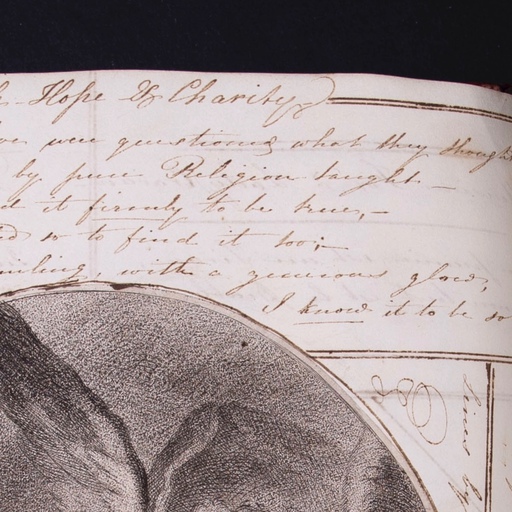 Hope & Charity
were questioned what they thought
by pure Religion taught.—
it firmly to be true,—
so to find it too;—
smiling, with a generous glow,
I know it to be so
Lines by